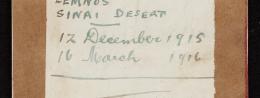 LEMNOS
SINAI DESERT
12 December 1915
16 March 1916